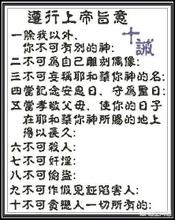 遵行上帝旨意
十誡
一除我以外，
你不可有別的神:
二不可為自己雕刻偶像:
三不可妄稱耶和華你神的名:
四當記念安息日，守為聖日:
五當孝敬父母，使你的日子
在耶和華你神所賜的地上
得以長久:
六不可殺人:
七不可奸淫:
八不可偷盜:
九不可作假見証陷害人:
十不可貪戀人一切所有的: